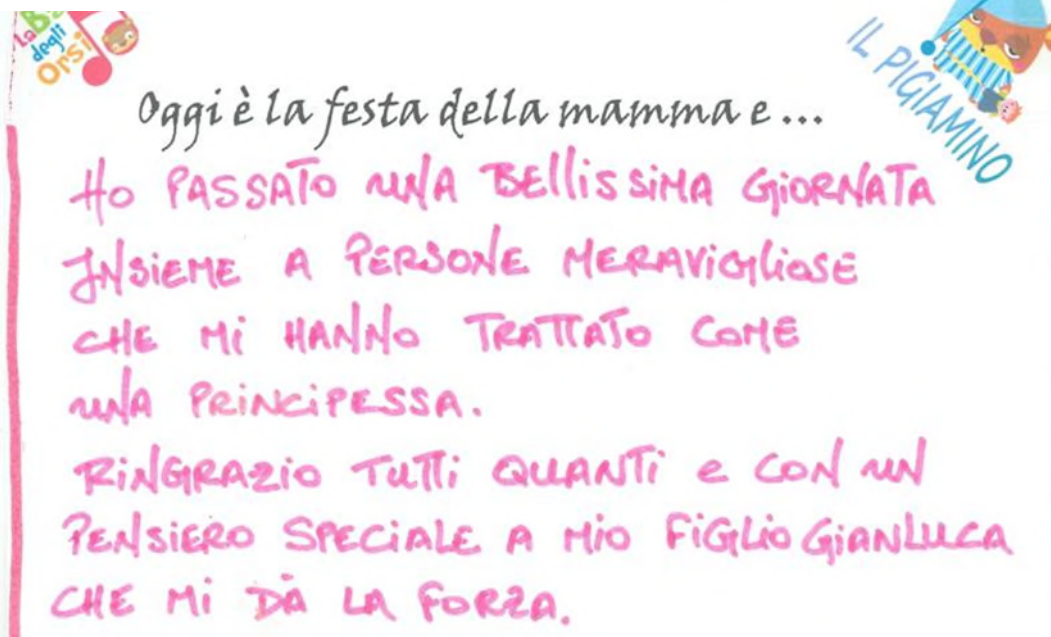 La Ba
degli
Orsi
IL PIGIAMINO
Oggi è la festa della mamma e ...
Ho PASSATO UNA BELLISSIMA GIORNATA
INSIEME A PERSONE MERAVIGLIOSE
CHE MI HANNO TRATTATO COME
UNA PRINCIPESSA.
RINGRAZIO TUTTI QUANTI e CON UN
PENSIERO SPECIALE A MIO FIGLIO GIANLUCA
CHE MI DÀ LA FORZA.